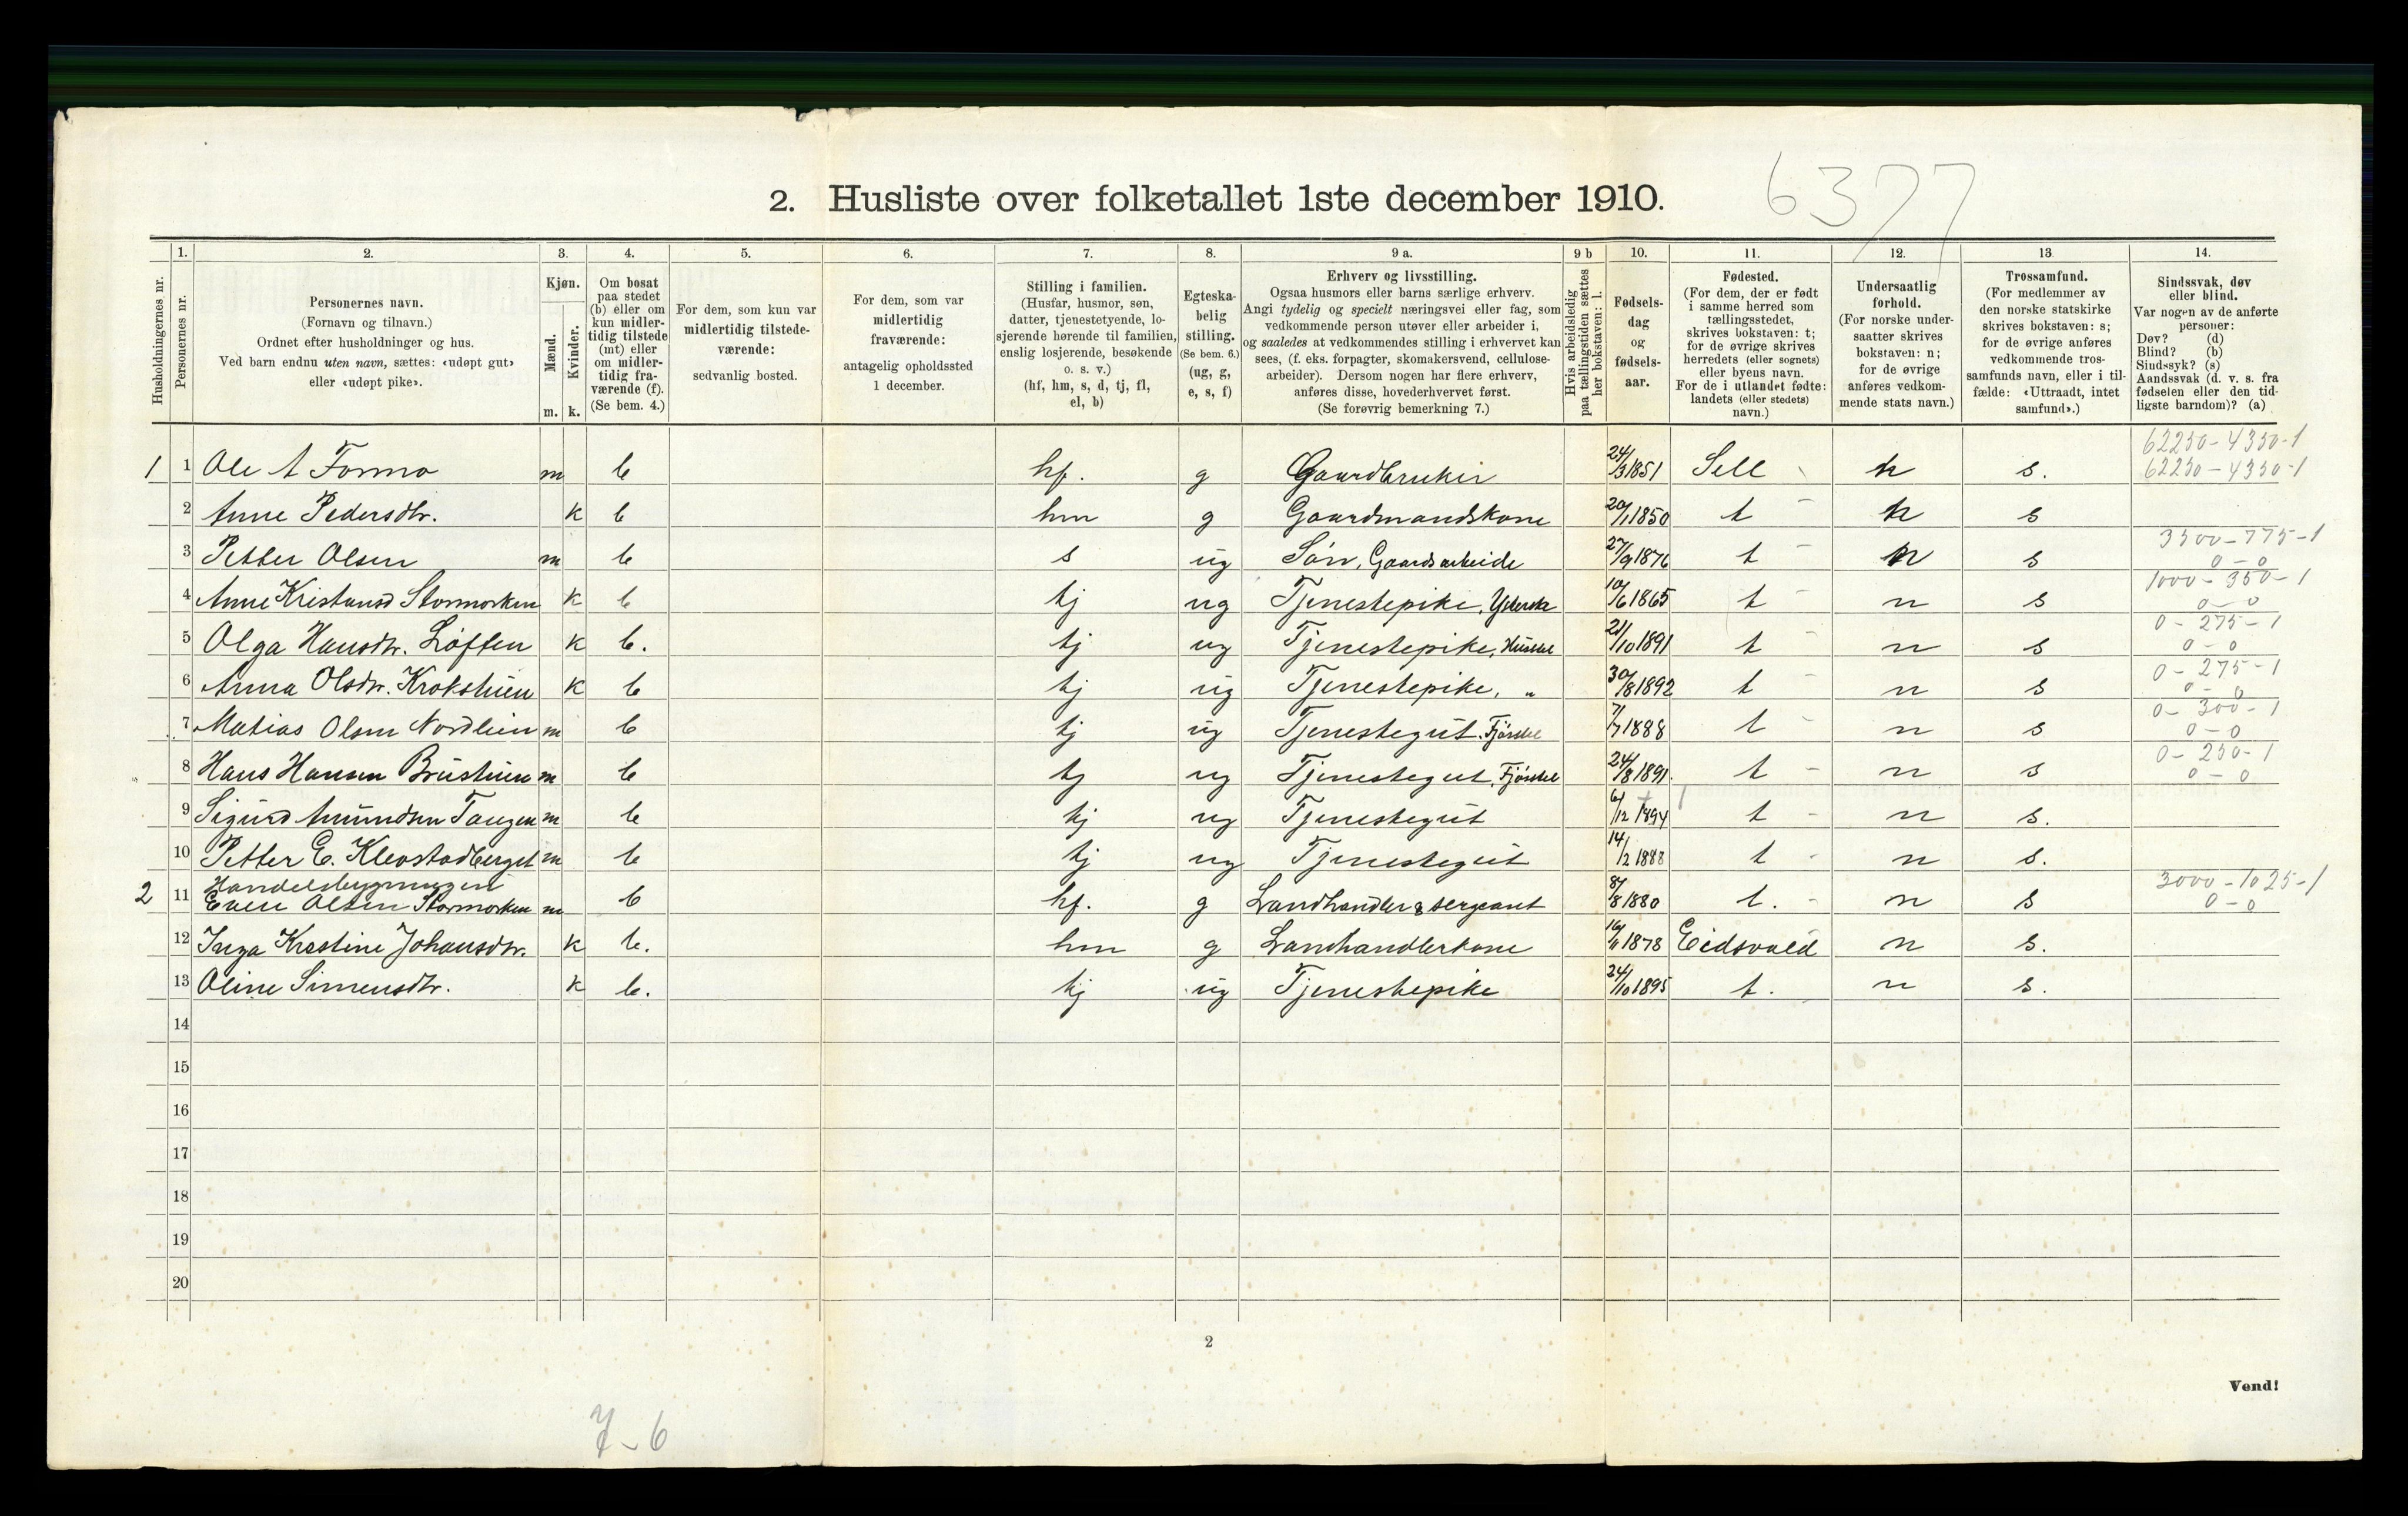 6377
2. Husliste over folketallet 1ste december 1910.
Husholdningernes nr.
1.
Personernes nr.
2.
Personernes navn.
(Fornavn og tilnavn.)
Ordnet efter husholdninger og hus.
Ved barn endnu uten navn, sættes: «udøpt gut»
eller «udøpt pike».
3.
Kjøn.
Mænd.
Kvinder.
m. k.
4.
Om bosat
paa stedet
(b) eller om
kun midler-
tidig tilstede
(mt) eller
om midler-
tidig fra-
værende (f).
(Se bem. 4.)
5.
For dem, som kun var
midlertidig tilstede-
værende:
sedvanlig bosted.
6.
For dem, som var
midlertidig
fraværende:
antagelig opholdssted
1 december.
7.
Stilling i familien.
(Husfar, husmor, søn,
datter, tjenestetyende, lo-
sjerende hørende til familien,
enslig losjerende, besøkende
o. s. v.)
(hf, hm, s, d, tj, fl,
el, b)
8.
Egteska-
belig
stilling.
(Se bem. 6.)
(ug, g,
e, s, f)
9 a.
Erhverv og livsstilling.
Ogsaa husmors eller barns særlige erhverv.
Angi tydelig og specielt næringsvei eller fag, som
vedkommende person utøver eller arbeider i,
og saaledes at vedkommendes stilling i erhvervet kan
sees, (f. eks. forpagter, skomakersvend, cellulose-
arbeider). Dersom nogen har flere erhverv,
anføres disse, hovederhvervet først.
(Se forøvrig bemerkning 7.)
9 b
Hvis arbeidsledig
paa tællingstiden sættes
her bokstaven: l.
10.
Fødsels-
dag
og
fødsels-
aar.
11.
Fødested.
(For dem, der er født
i samme herred som
tællingsstedet,
skrives bokstaven: t;
for de øvrige skrives
herredets (eller sognets)
eller byens navn.
For de i utlandet fødte:
landets (eller stedets)
navn.)
12.
Undersaatlig
forhold.
(For norske under-
saatter skrives
bokstaven: n;
for de øvrige
anføres vedkom-
mende stats navn.)
13
Trossamfund.
(For medlemmer av
den norske statskirke
skrives bokstaven: s;
for de øvrige anføres
vedkommende tros-
samfunds navn, eller i til-
fælde: «Uttraadt, intet
samfund».)
14.
Sindssvak, døv
eller blind.
Var nogen av de anførte
personer:
Døv? (d)
Blind? (b)
Sindssyk? (s)
Aandssvak (d. v. s. fra
fødselen eller den tid-
ligste barndom)? (a)
62250-4350-1
1 1 Ole A Formo m b hf. g Gaardbruker 24/3 1851 Sell n s. 62250-4350-1
2 Anne Pedersdtr. k b hm g Gaardmandskone 20/1 1850 t n s
3500-775-1
3 Petter Olsen m b s ug Søn, Gaardsarbeide 27/9 1876 t n s 0-0
1000-350-1
4 Anne Kristiansd Stormorken k b tj ug Tjenestepike, 10/6 1865 t n s 0-0
0-275-1
5 Olga Hansdtr. Løften k b. tj ug Tjenestepike, Husstel 21/10 1891 t n s 0-0
0-275-1
6 Anna Olsdtr. Krokshien k b tj ug Tjenestepike, " 30/8 1892 t n s 0-0
0-300-1
7 Matias Olsen Nordlien m b tj ug Tjenestegut. Fjøsstel 7/7 1888 t n s 0-0
0-250-1
8 Hans Hansen Brushien m b tj ug Tjenestegut, Fjøsstel 24/8 1891. t n s 0-0
9 Sigurd Amundsen Tangen m b tj ug Tjenestegut 6/12 1894 t n s.
10 Petter E. Klevstadberget m b tj ug Tjenestegut 14/2 1888 t n s.
Handelsbygningen
3000-1025-1
2 11 Even Olsen Stormorken m b hf. g Landhandler & sergeant 8/8 1880 t. n s 0-0
12 Inga Kristine Johansdtr. k b. hm g Landhandlerkone 16/11 1878 Eidsvold n s.
13 Oline Simensdtr. k b. tj ug Tjenestepike 24/10 1895 t. n s.
14
15
16
17
18
19
20
2
Vend!
7-6